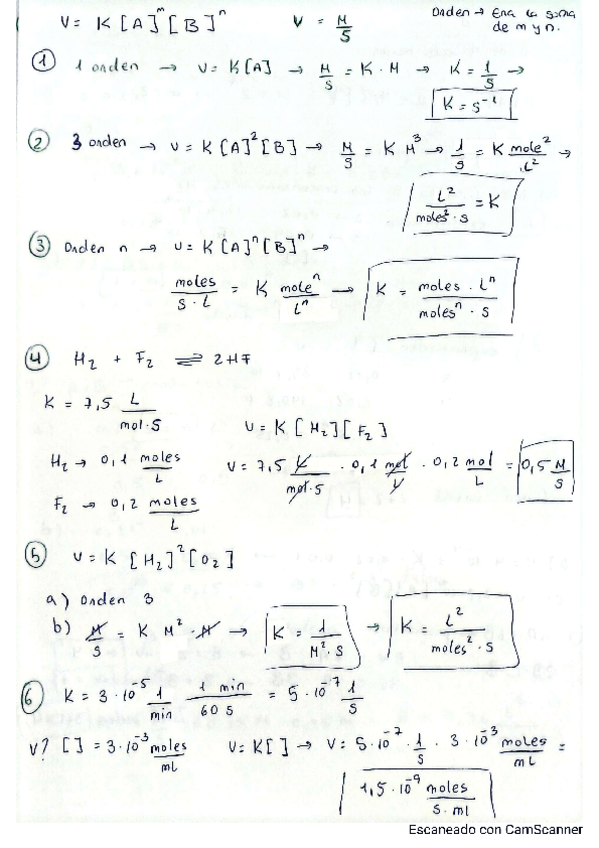 V = K [A]^m [B]^n   V = M/S   Orden → Era la suma de m y n.
① 1 orden → V = K[A] → M/S = K · M → K = 1/S →
K = s^-1
② 3 orden → V = K[A]^2[B] → M/S = K M^3 → 1/S = K mole^2/L^2 →
L^2/moles^2 · s = K
③ Orden n → V = K[A]^n[B]^n →
moles/S · L = K mole^n/L^n → K = moles · L^n/moles^n · s
④ H2 + F2 ⇌ 2HF
K = 7,5 L/mol · S   V = K [H2][F2]
H2 → 0,1 moles/L   V = 7,5 L/mol · s · 0,1 mol/L · 0,2 mol/L = 0,5 M/S
F2 → 0,2 moles/L
⑤ V = K [H2]^2[O2]
a) Orden 3
b) M/S = K M^2 · M → K = 1/M^2 · S → K = L^2/moles^2 · S
⑥ K = 3 · 10^-5 1/min 1 min/60 S = 5 · 10^-7 1/S
V? [ ] = 3 · 10^-3 moles/ml   V = K[ ] → V = 5 · 10^-7 · 1/s · 3 · 10^-3 moles/ml =
1,5 · 10^-9 moles/s · ml
Escaneado con CamScanner